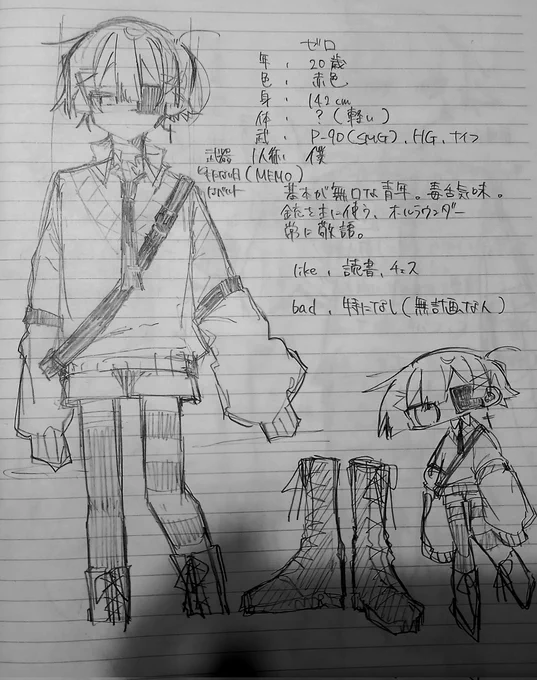 ゼロ
年. 20歳
色. 赤色
身. 142cm
体. ?(軽い)
武. P-90(SMG)、HG、ナイフ
1人称. 僕
武器
(MEMO)
基本が無口な青年。毒舌気味。
銃を主に使う、オールラウンダー
常に敬語。
like. 読書、チェス
bad. 特になし(無計画な人)